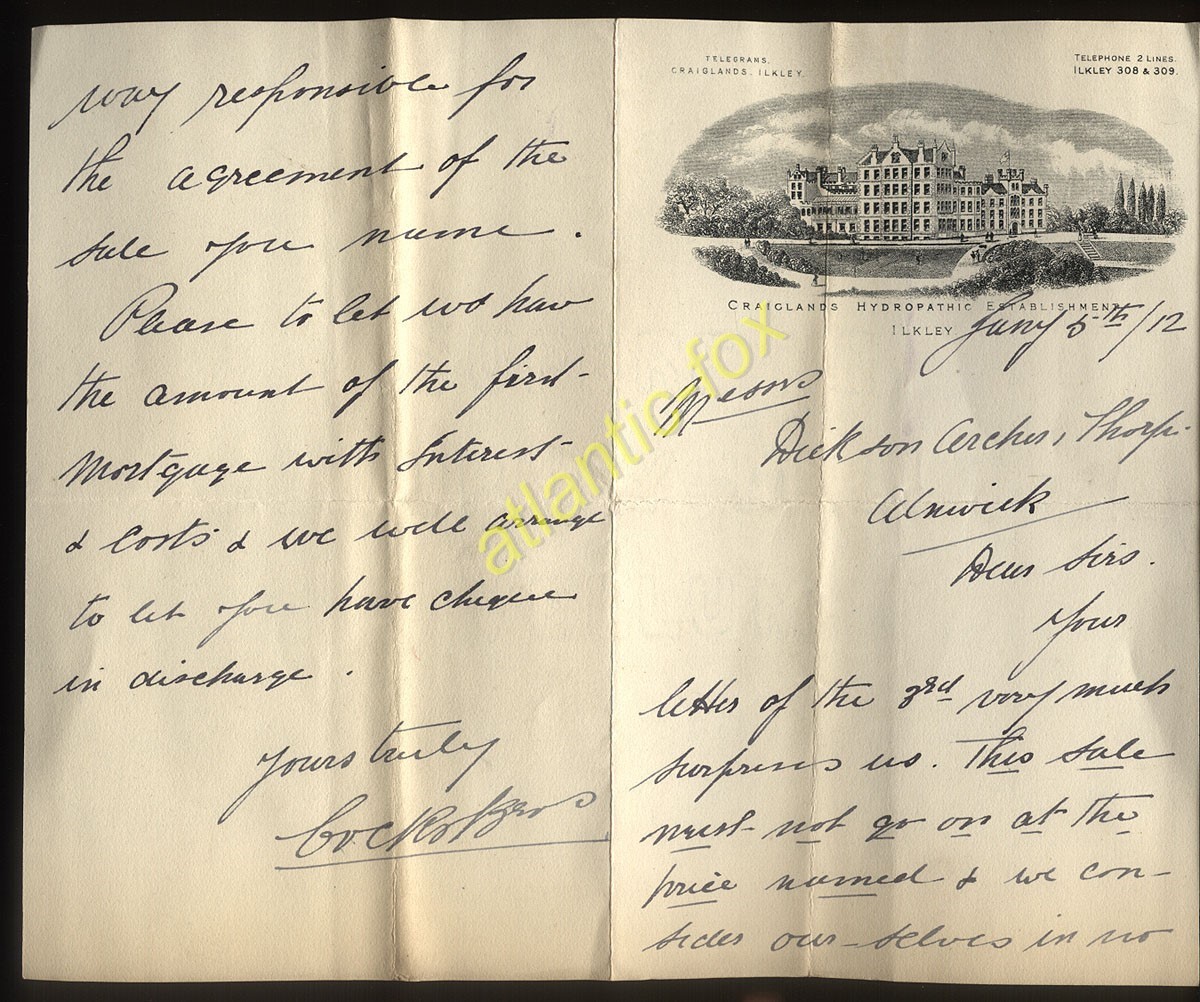 TELEGRAMS.
CRAIGLANDS. ILKLEY.
TELEPHONE 2 LINES.
ILKLEY 308 & 309.
CRAIGLANDS HYDROPATHIC ESTABLISHMENT
ILKLEY
Jany 5th/12
Messrs
Dickson Archer, Thorp.
Alnwick
Dear Sirs.
Your
letter of the 3rd very much
surprises us. This sale
must not go on at the
price named & we con-
sider our-selves in no
way responsible for
the agreement of the
sale you name.
Please to let us have
the amount of the first
Mortgage with Interest
& Costs & we will arrange
to let you have cheque
in discharge.
Yours truly
Bros
atlantic-fox